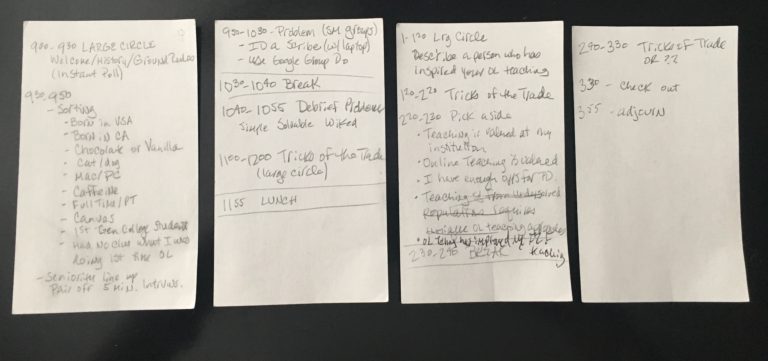 900-930 LARGE CIRCLE
Welcome/History/Ground Rules
(Instant Poll)
930-950
- Sorting
- Born in USA
- Born in CA
- Chocolate or Vanilla
- Cat/dog
- Mac/PC
- Caffeine
- Full Time/PT
- Canvas
- 1st Gen College Student
- Had No Clue what I was
doing 1st time OL
- Seniority line up
Pair off 5 min. Intervals.
950-1030 - Problem (SM groups)
- ID a Scribe (w/ laptop)
- Use Google Group Do
1030-1040 Break
1040-1055 Debrief Problems
Simple Solvable Wicked
1100-1200 Tricks of the Trade
(large circle)
1155 LUNCH
1-120 Lrg Circle
Describe a person who has
inspired your OL teaching
120-220 Tricks of the Trade
220-230 Pick a side
• Teaching is valued at my
institution
• Online Teaching is valued
• I have enough opps for PD.
• Teaching
Populations requires
unique OL teaching
• OL teaching has improved my F2F
teaching
230-240 BREAK
240-330 Tricks of Trade
OR ??
330 - Check out
355 - adjourn